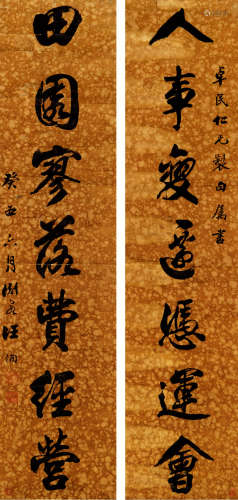 卓民仁兄製句屬書
人事變遷憑運會
田園寥落費經營
癸丑六月淵若汪洵